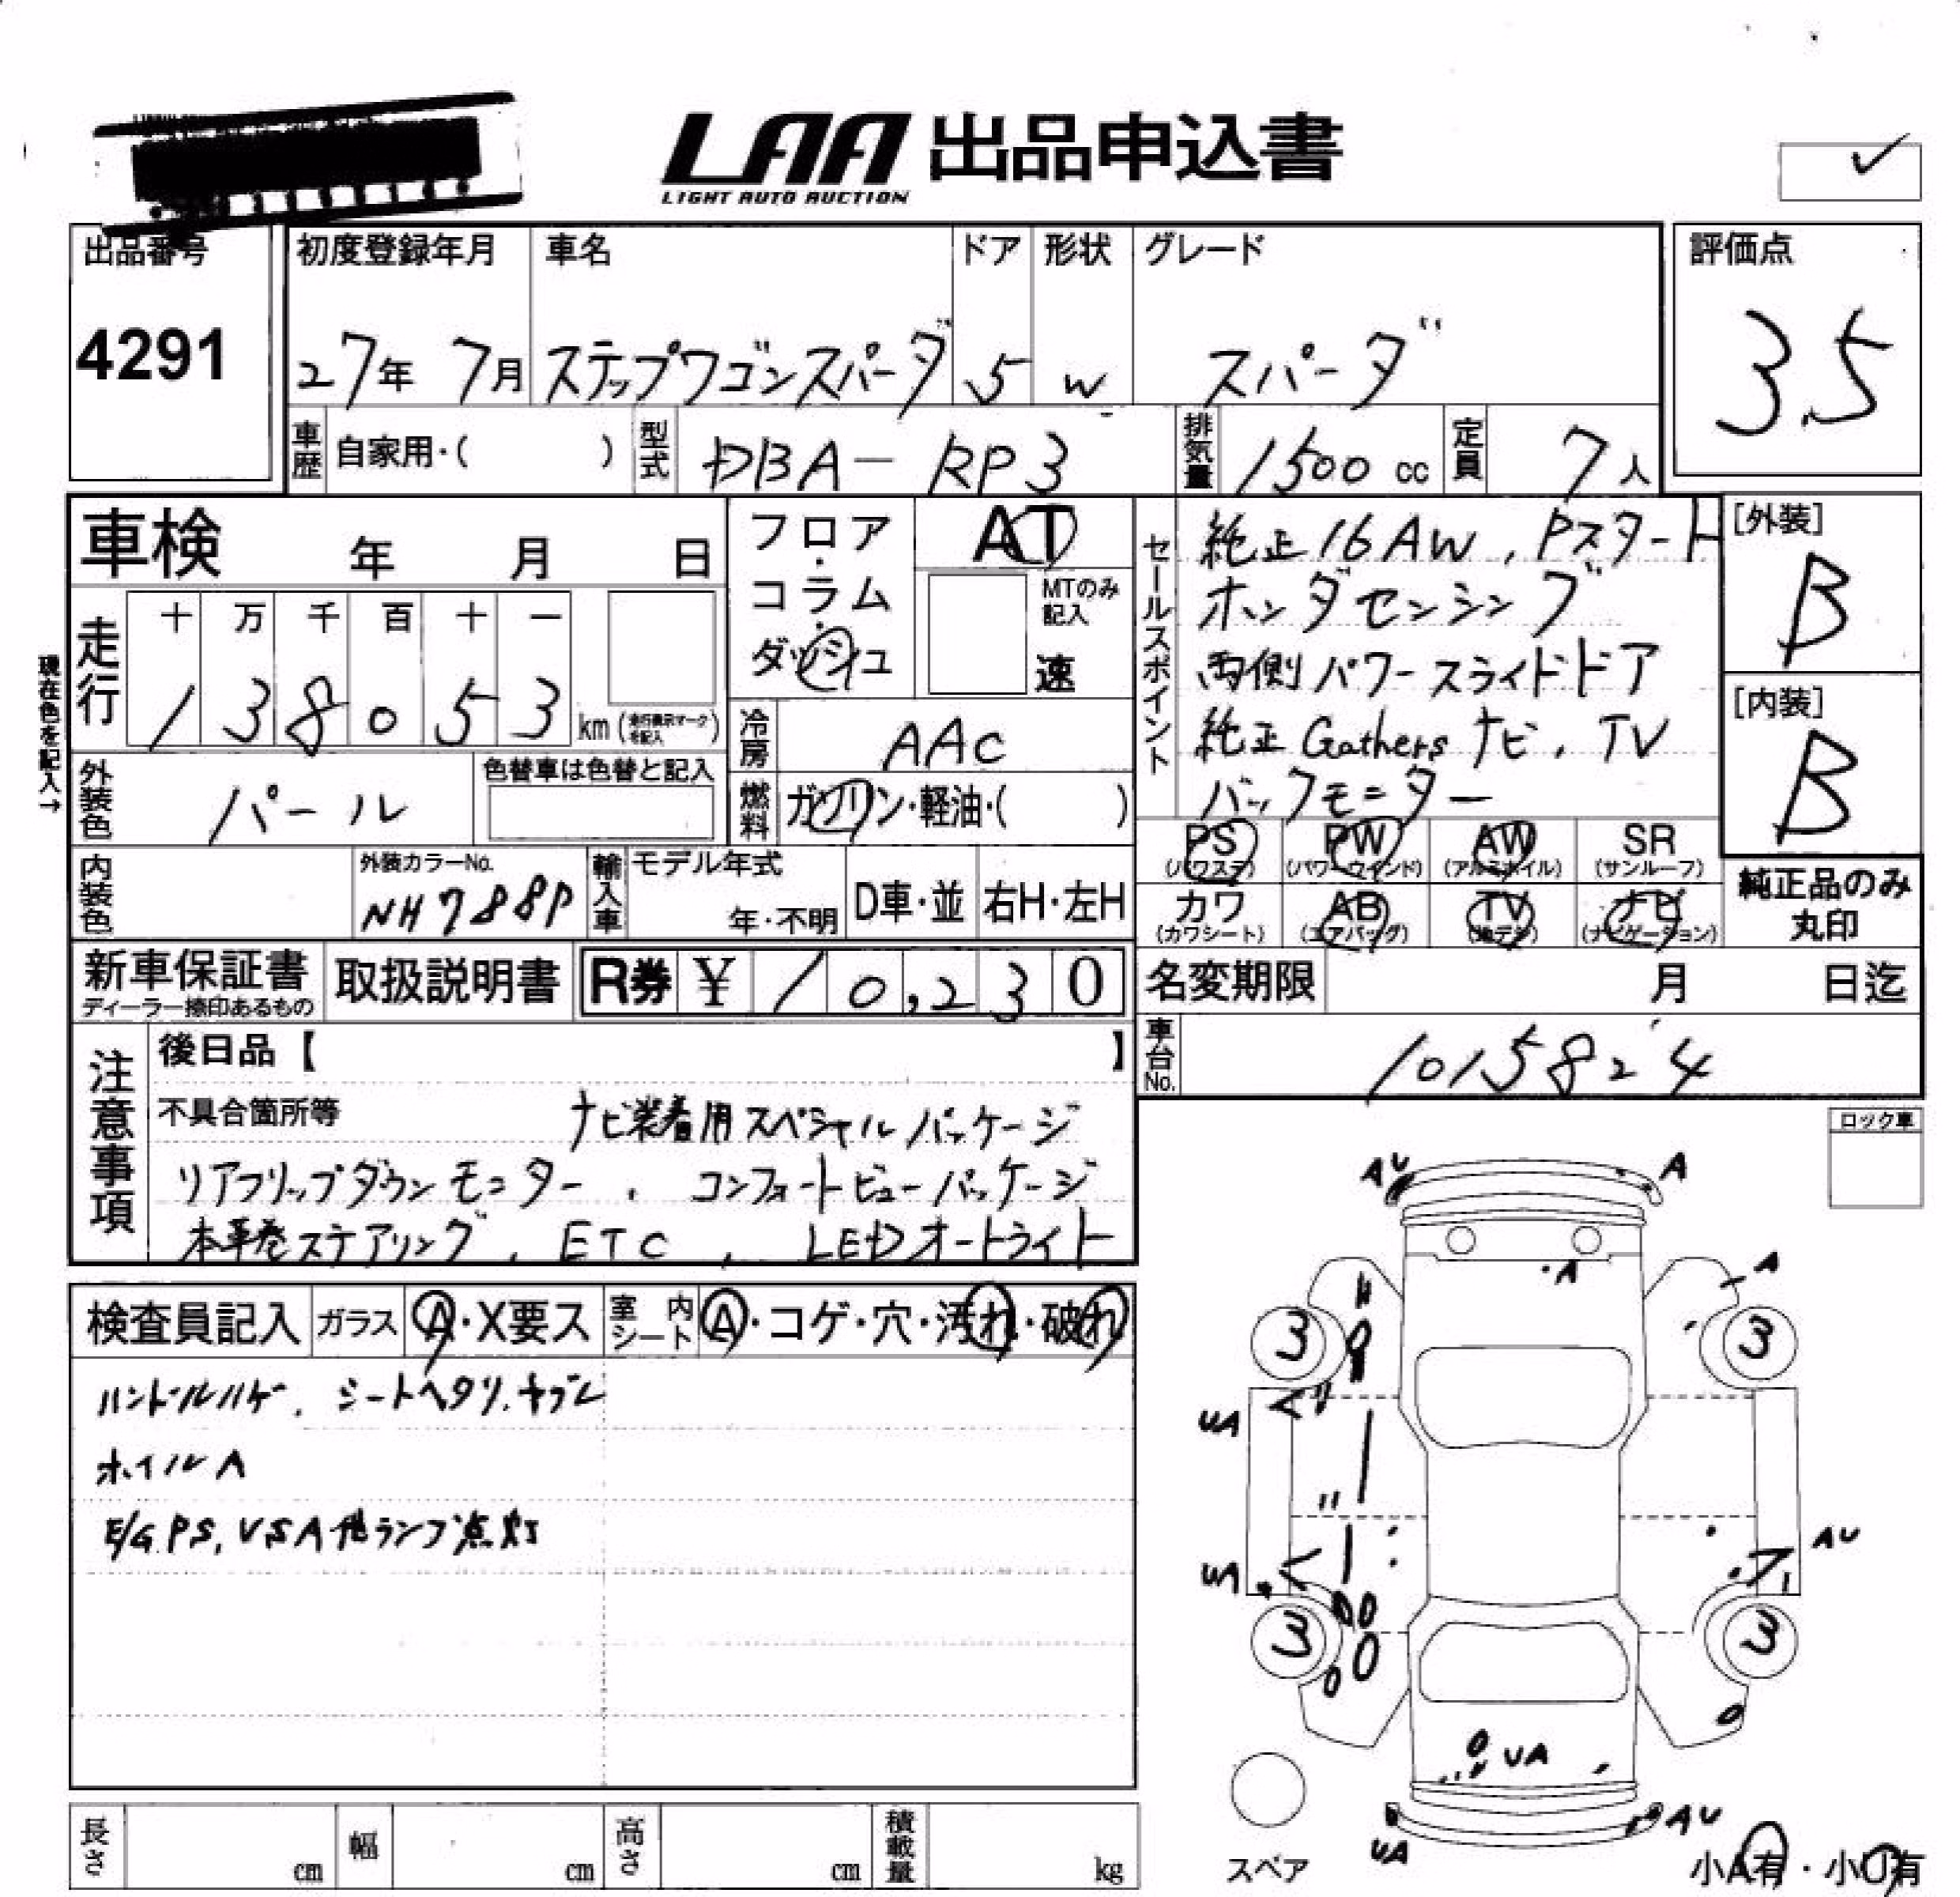 LAA 出品申込書
LIGHT AUTO AUCTION
出品番号
4291
初度登録年月
27年 7月
車名
ステップワゴンスパーダ
ドア
5
形状
W
グレード
スパーダ
評価点
3.5
車歴 自家用・( )
型式 DBA-RP3
排気量 1500 cc
定員 7人
車検 年 月 日
フロア・コラム・ダッシュ
AT
MTのみ記入
速
セールスポイント
純正16AW, Pスタート
ホンダセンシング
両側パワースライドドア
純正Gathersナビ, TV
バックモニター
[外装]
B
[内装]
B
現在色を記入→
走行
十 万 千 百 十 一
1 3 8 0 5 3 km (走行表示マークを記入)
冷房 AAC
外装色 パール
色替車は色替と記入
燃料 ガソリン・軽油・( )
PS (パワステ)
PW (パワーウインド)
AW (アルミホイル)
SR (サンルーフ)
カワ (カワシート)
AB (エアバッグ)
TV (テレビ)
ナビ (ナビゲーション)
純正品のみ丸印
内装色
外装カラーNo.
NH788P
輸入車 モデル年式
年・不明
D車・並
右H・左H
新車保証書
ディーラー捺印あるもの
取扱説明書
R券 ¥ 10,230
名変期限 月 日迄
車台No. 1015824
注意事項
後日品【 】
不具合箇所等 ナビ装着用スペシャルパッケージ
リアフリップダウンモニター, コンフォートビューパッケージ
本革巻ステアリング, ETC, LEDオートライト
ロック車
検査員記入
ガラス A・X要ス
室内シート A・コゲ・穴・汚れ・破れ
ハンドルハゲ, シートヘタリ, ヤブレ
ホイルA
E/G, PS, VSA他ランプ点灯
AU
A
A
A
3
3
UA
UA
AU
3
3
UA
UA
AU
スペア
小A有・小U有
長さ cm
幅 cm
高さ cm
積載量 kg